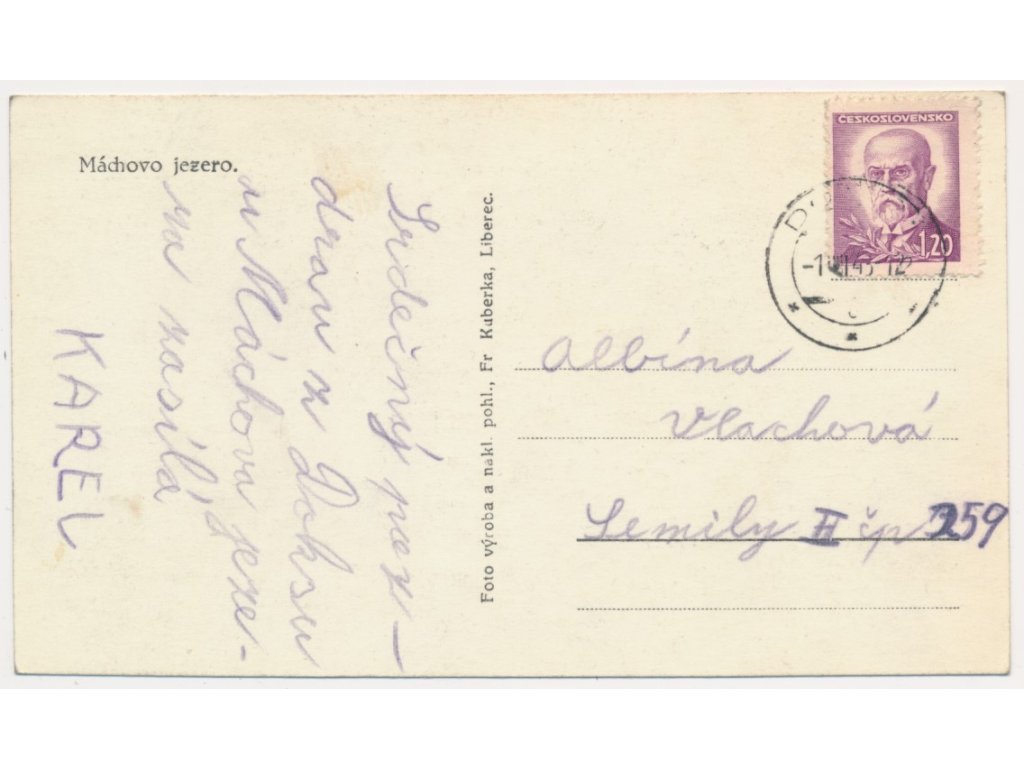 Máchovo jezero.
Srdečný poz-
drav z Doksu
u Máchova jeze-
ra zasílá
KAREL
Foto výroba a nákl. pohl., Fr Kuberka, Liberec.
ČESKOSLOVENSKO
1,20
Albína
Vlachová
Semily II čp 259